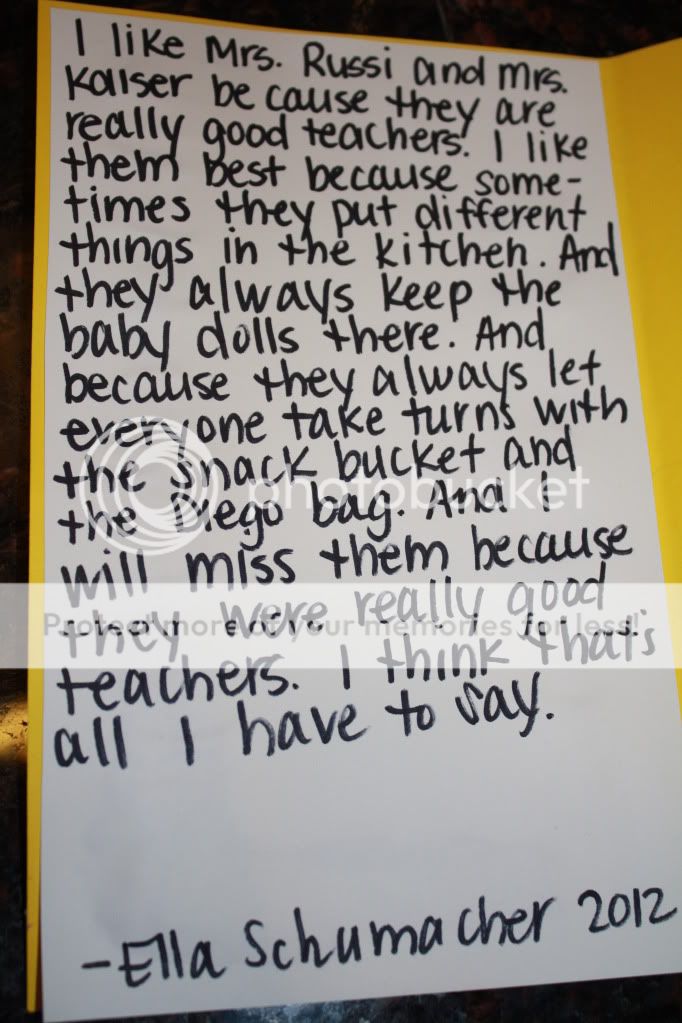 I like Mrs. Russi and Mrs.
Kaiser be cause they are
really good teachers. I like
them best because some-
times they put different
things in the kitchen. And
they always keep the
baby dolls there. And
because they always let
everyone take turns with
the snack bucket and
the Diego bag. And I
photobucket
will miss them because
they were really good
Protect more of your memories for less!
teachers. I think that's
all I have to say.
-Ella Schumacher 2012